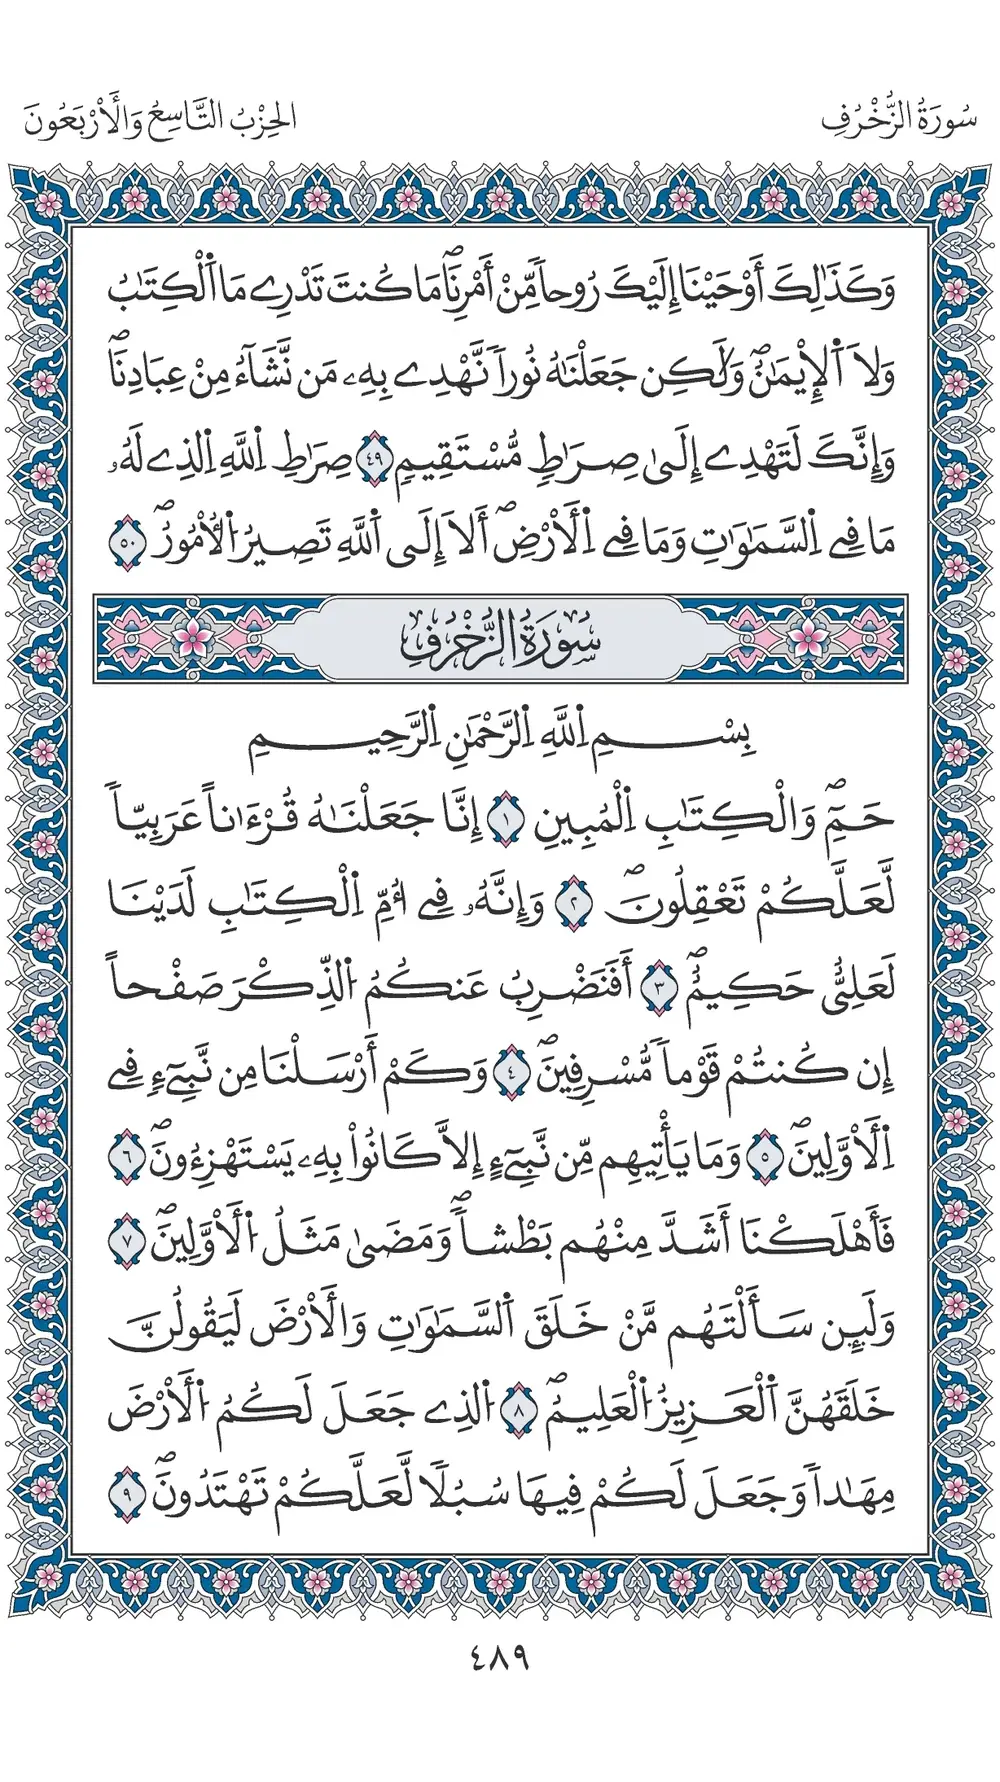 سُورَةُ الزُّخْرُفِ
الحِزْبُ التَّاسِعُ وَالْأَرْبَعُونَ
وَكَذَٰلِكَ أَوْحَيْنَا إِلَيْكَ رُوحاٗ مِّنْ أَمْرِنَاۖ مَا كُنتَ تَدْرِے مَا اَ۬لْكِتَٰبُ
وَلَا اَ۬لْإِيمَٰنُۖ وَلَٰكِن جَعَلْنَٰهُ نُوراٗ نَّهْدِے بِهِۦ مَن نَّشَآءُ مِنْ عِبَادِنَاۖ
وَإِنَّكَ لَتَهْدِےٓ إِلَىٰ صِرَٰطٖ مُّسْتَقِيمٖ ٤٩ صِرَٰطِ اِ۬للَّهِ اِ۬لذِے لَهُۥ
مَا فِے اِ۬لسَّمَٰوَٰتِ وَمَا فِے اِ۬لْأَرْضِۖ أَلَآ إِلَى اَ۬للَّهِ تَصِيرُ اُ۬لْأُمُورُۖ ٥٠
سُورَةُ الزُّخْرُفِ
بِسْمِ اِ۬للَّهِ اِ۬لرَّحْمَٰنِ اِ۬لرَّحِيمِ
حَمِٓۖ وَالْكِتَٰبِ اِ۬لْمُبِينِ ١ إِنَّا جَعَلْنَٰهُ قُرْءَٰناً عَرَبِيّاٗ
لَّعَلَّكُمْ تَعْقِلُونَۖ ٢ وَإِنَّهُۥ فِےٓ أُمِّ اِ۬لْكِتَٰبِ لَدَيْنَا
لَعَلِيٌّ حَكِيمٌۖ ٣ أَفَنَضْرِبُ عَنكُمُ اُ۬لذِّكْرَ صَفْحاً
إِن كُنتُمْ قَوْماٗ مُّسْرِفِينَۖ ٤ وَكَمْ أَرْسَلْنَا مِن نَّبِيٓءٖ فِے
اِ۬لْأَوَّلِينَۖ ٥ وَمَا يَأْتِيهِم مِّن نَّبِيٓءٍ إِلَّا كَانُواْ بِهِۦ يَسْتَهْزِءُونَۖ ٦
فَأَهْلَكْنَا أَشَدَّ مِنْهُم بَطْشاٗۖ وَمَضَىٰ مَثَلُ اُ۬لْأَوَّلِينَۖ ٧
وَلَئِن سَأَلْتَهُم مَّنْ خَلَقَ اَ۬لسَّمَٰوَٰتِ وَالْأَرْضَ لَيَقُولُنَّ
خَلَقَهُنَّ اَ۬لْعَزِيزُ اُ۬لْعَلِيمُۖ ٨ اُ۬لذِے جَعَلَ لَكُمُ اُ۬لْأَرْضَ
مِهَٰداٗ وَجَعَلَ لَكُمْ فِيهَا سُبُلاٗ لَّعَلَّكُمْ تَهْتَدُونَۖ ٩
٤٨٩